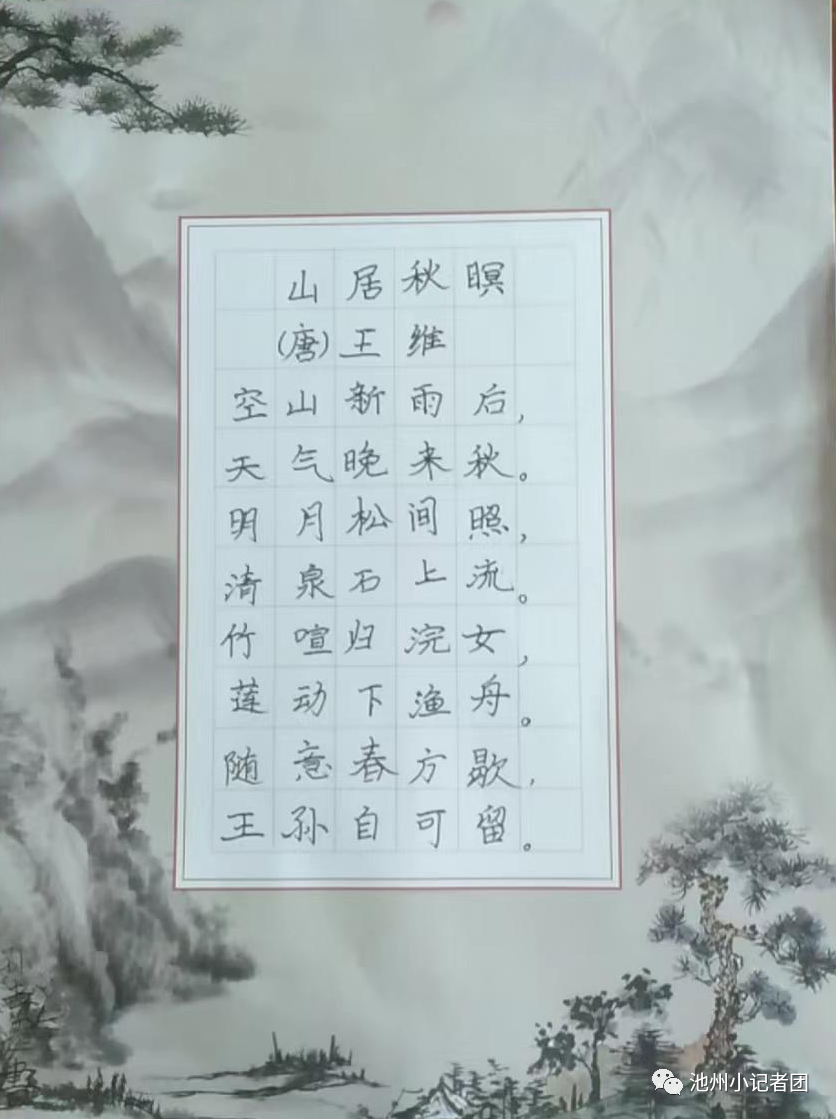 山居秋暝
(唐)王维
空山新雨后,
天气晚来秋。
明月松间照,
清泉石上流。
竹喧归浣女,
莲动下渔舟。
随意春方歇,
王孙自可留。
池州小记者团